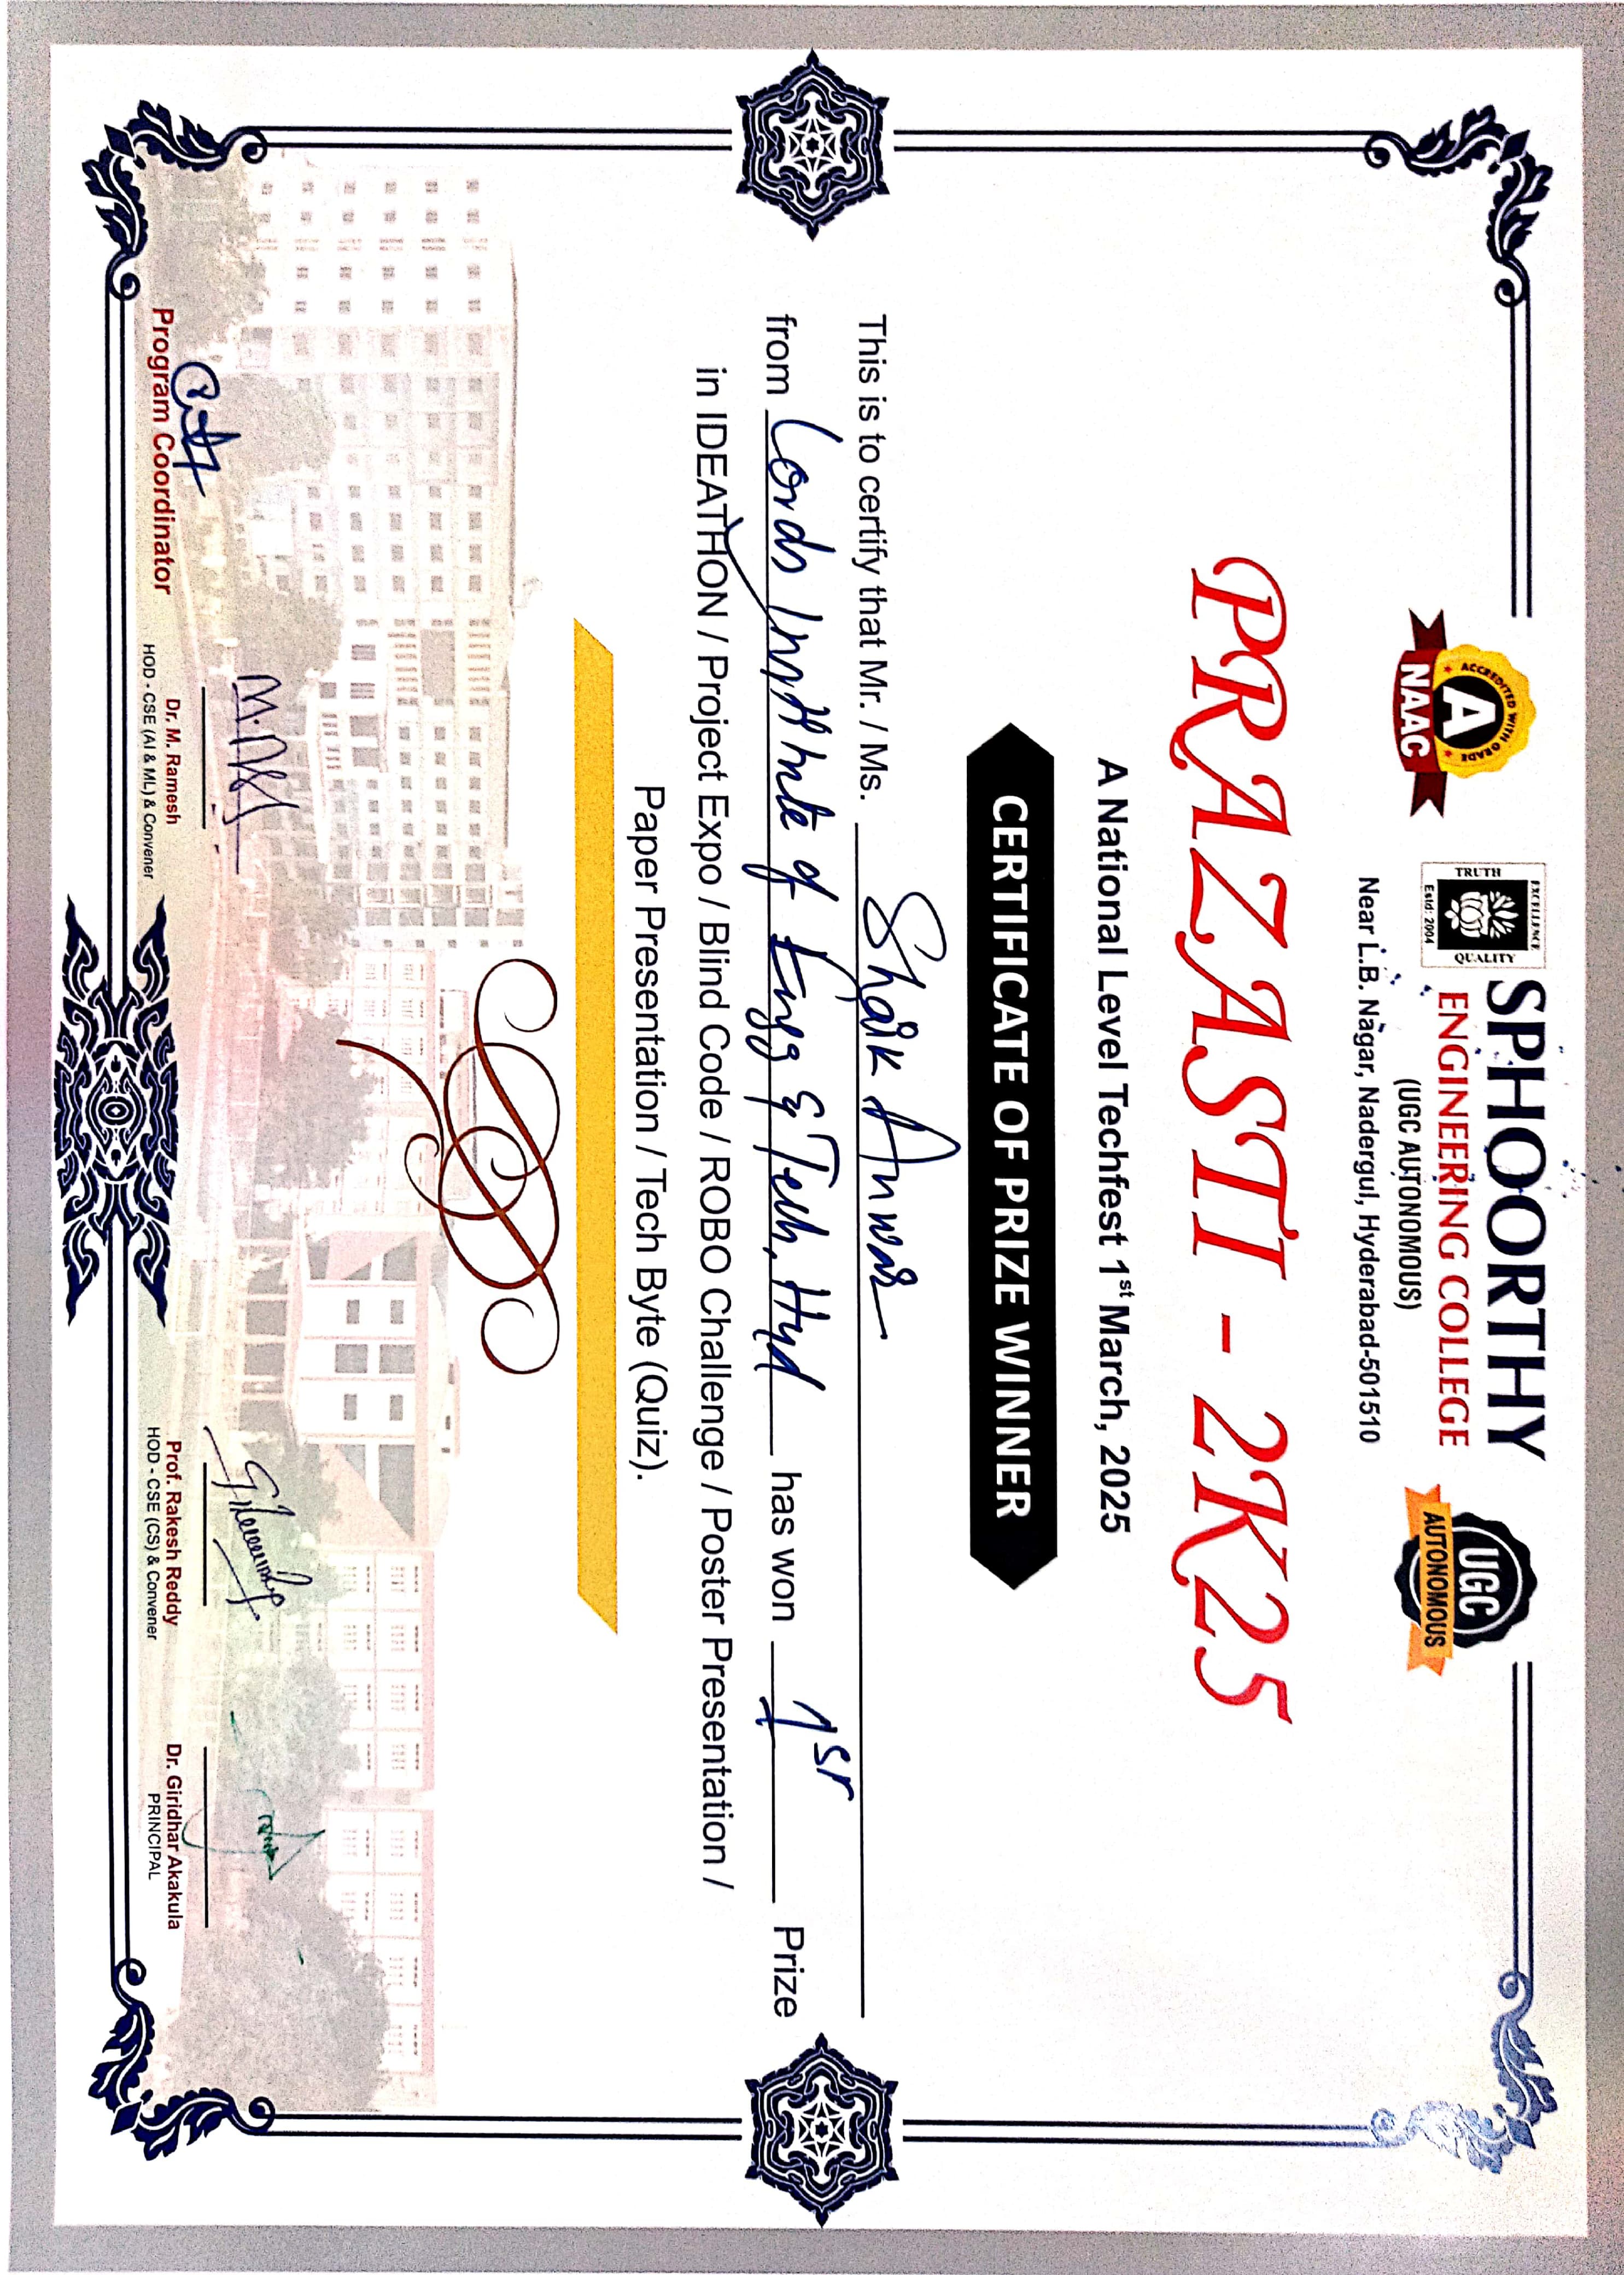 ACCREDITED WITH GRADE
A
NAAC
EXCELLENCE
TRUTH
QUALITY
Estd: 2004
SPHOORTHY
ENGINEERING COLLEGE
(UGC AUTONOMOUS)
Near L.B. Nagar, Nadergul, Hyderabad-501510
UGC
AUTONOMOUS
PRAZASTI - 2K25
A National Level Techfest 1st March, 2025
CERTIFICATE OF PRIZE WINNER
This is to certify that Mr. / Ms. Shaik Anwar
from Lords Institute of Engg & Tech, Hyd has won 1st Prize
in IDEATHON / Project Expo / Blind Code / ROBO Challenge / Poster Presentation /
Paper Presentation / Tech Byte (Quiz).
Program Coordinator
Dr. M. Ramesh
HOD - CSE (AI & ML) & Convener
Prof. Rakesh Reddy
HOD - CSE (CS) & Convener
Dr. Giridhar Akakula
PRINCIPAL